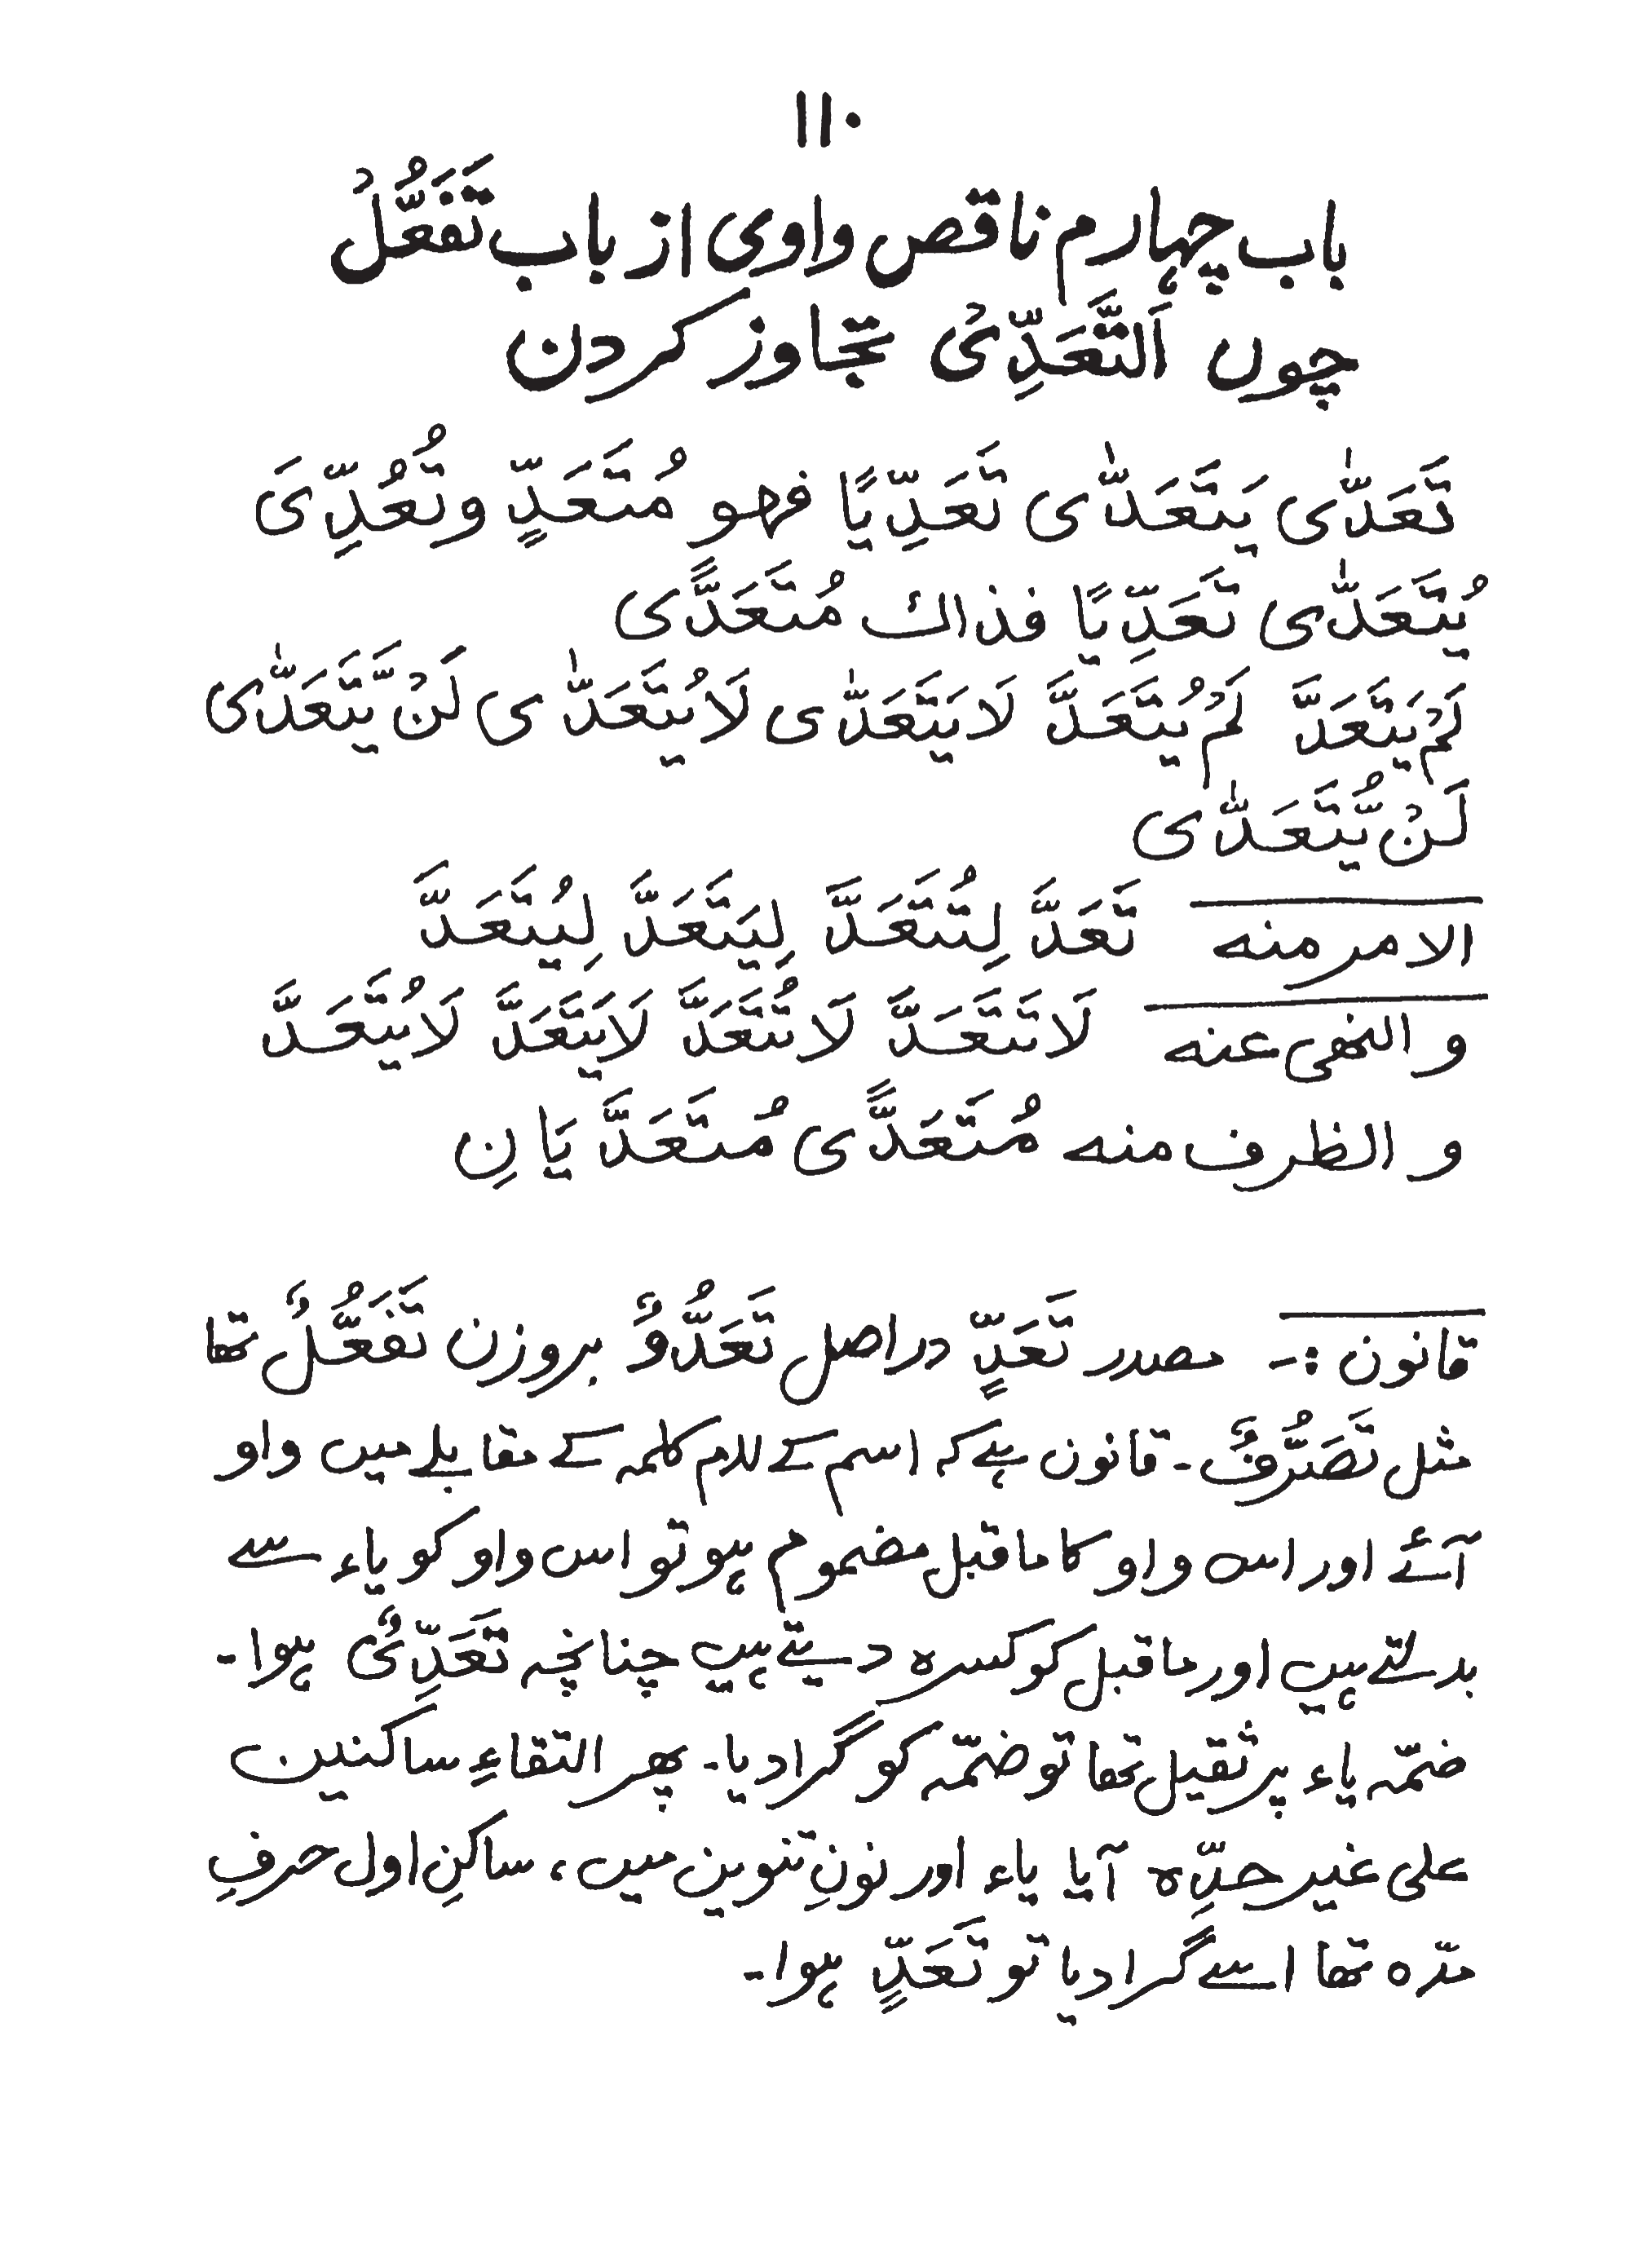 ۱۱۰
باب چہارم ناقص واوی از باب تَفَعُّلْ
چوں اَلتَّعَدِّیْ تجاوز کردن
تَعَدّٰی یَتَعَدّٰی تَعَدِّیًا فهو مُتَعَدٍّ وتُعُدِّیَ
یُتَعَدّٰی تَعَدِّیًا فذاك مُتَعَدًّی
لَمْ یَتَعَدَّ لَمْ یُتَعَدَّ لَا یَتَعَدّٰی لَا یُتَعَدّٰی لَنْ یَّتَعَدّٰی
لَنْ یُّتَعَدّٰی
الامر منه تَعَدَّ لِتُتَعَدَّ لِیَتَعَدَّ لِیُتَعَدَّ
و النھی عنه لَا تَتَعَدَّ لَا تُتَعَدَّ لَا یَتَعَدَّ لَا یُتَعَدَّ
و الظرف منه مُتَعَدًّی مُتَعَدَّیَانِ
قانون :- مصدر تَعَدٍّ دراصل تَعَدُّوٌ بروزن تَفَعُّلٌ تھا
مثل تَصَرُّفٌ ۔ قانون ہے کہ اسم کے لام کلمہ کے مقابلے میں واو
آئے اور اس واو کا ماقبل مضموم ہو تو اس واو کو یاء سے
بدلتے ہیں اور ماقبل کو کسرہ دیتے ہیں چنانچہ تَعَدِّیٌ ہوا۔
ضمّہ یاء پر ثقیل تھا تو ضمّہ کو گرا دیا۔ پھر التقاءِ ساکنین
علی غیر حدِّہ آیا یاء اور نونِ تنوین میں، ساکنِ اول حرفِ
مدّہ تھا اسے گرا دیا تو تَعَدٍّ ہوا۔